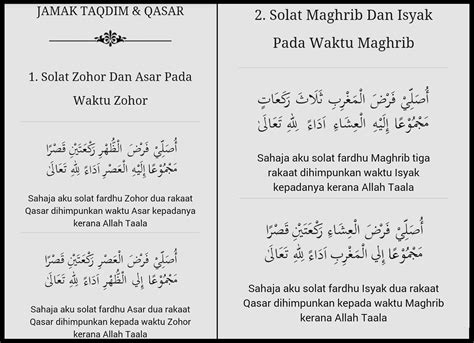 JAMAK TAQDIM & QASAR
1. Solat Zohor Dan Asar Pada
Waktu Zohor
أُصَلِّيْ فَرْضَ الظُّهْرِ رَكْعَتَيْنِ قَصْرًا
مَجْمُوْعًا إِلَيْهِ الْعَصْرِ اَدَاءً لِلّٰهِ تَعَالَى
Sahaja aku solat fardhu Zohor dua rakaat
Qasar dihimpunkan waktu Asar kepadanya
kerana Allah Taala
أُصَلِّيْ فَرْضَ الْعَصْرِ رَكْعَتَيْنِ قَصْرًا
مَجْمُوْعًا إِلَي الظُّهْرِ اَدَاءً لِلّٰهِ تَعَالَى
Sahaja aku solat fardhu Asar dua rakaat
Qasar dihimpunkan kepada waktu Zohor
kerana Allah Taala
2. Solat Maghrib Dan Isyak
Pada Waktu Maghrib
أُصَلِّيْ فَرْضَ الْمَغْرِبِ ثَلَاثَ رَكَعَاتٍ
مَجْمُوْعًا إِلَيْهِ الْعِشَاءِ اَدَاءً لِلّٰهِ تَعَالَىٰ
Sahaja aku solat fardhu Maghrib tiga
rakaat dihimpunkan waktu Isyak
kepadanya kerana Allah Taala
أُصَلِّيْ فَرْضَ الْعِشَاءِ رَكْعَتَيْنِ قَصْرًا
مَجْمُوْعًا إِلَي الْمَغْرِبِ اَدَاءً لِلّٰهِ تَعَالَىٰ
Sahaja aku solat fardhu Isyak dua rakaat
Qasar dihimpunkan kepada waktu Maghrib
kerana Allah Taala